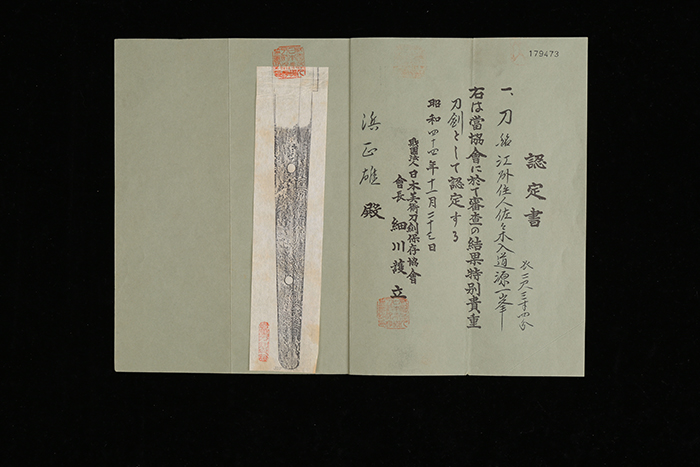 179473
認定書
一、刀 銘 江州住人佐々木入道源一峯
長二尺三寸四分
右は當協會に於て審査の結果特別貴重
刀剣として認定する
昭和四十四年十一月二十三日
財團法人日本美術刀剣保存協會
會長 細川護立
浜正雄 殿